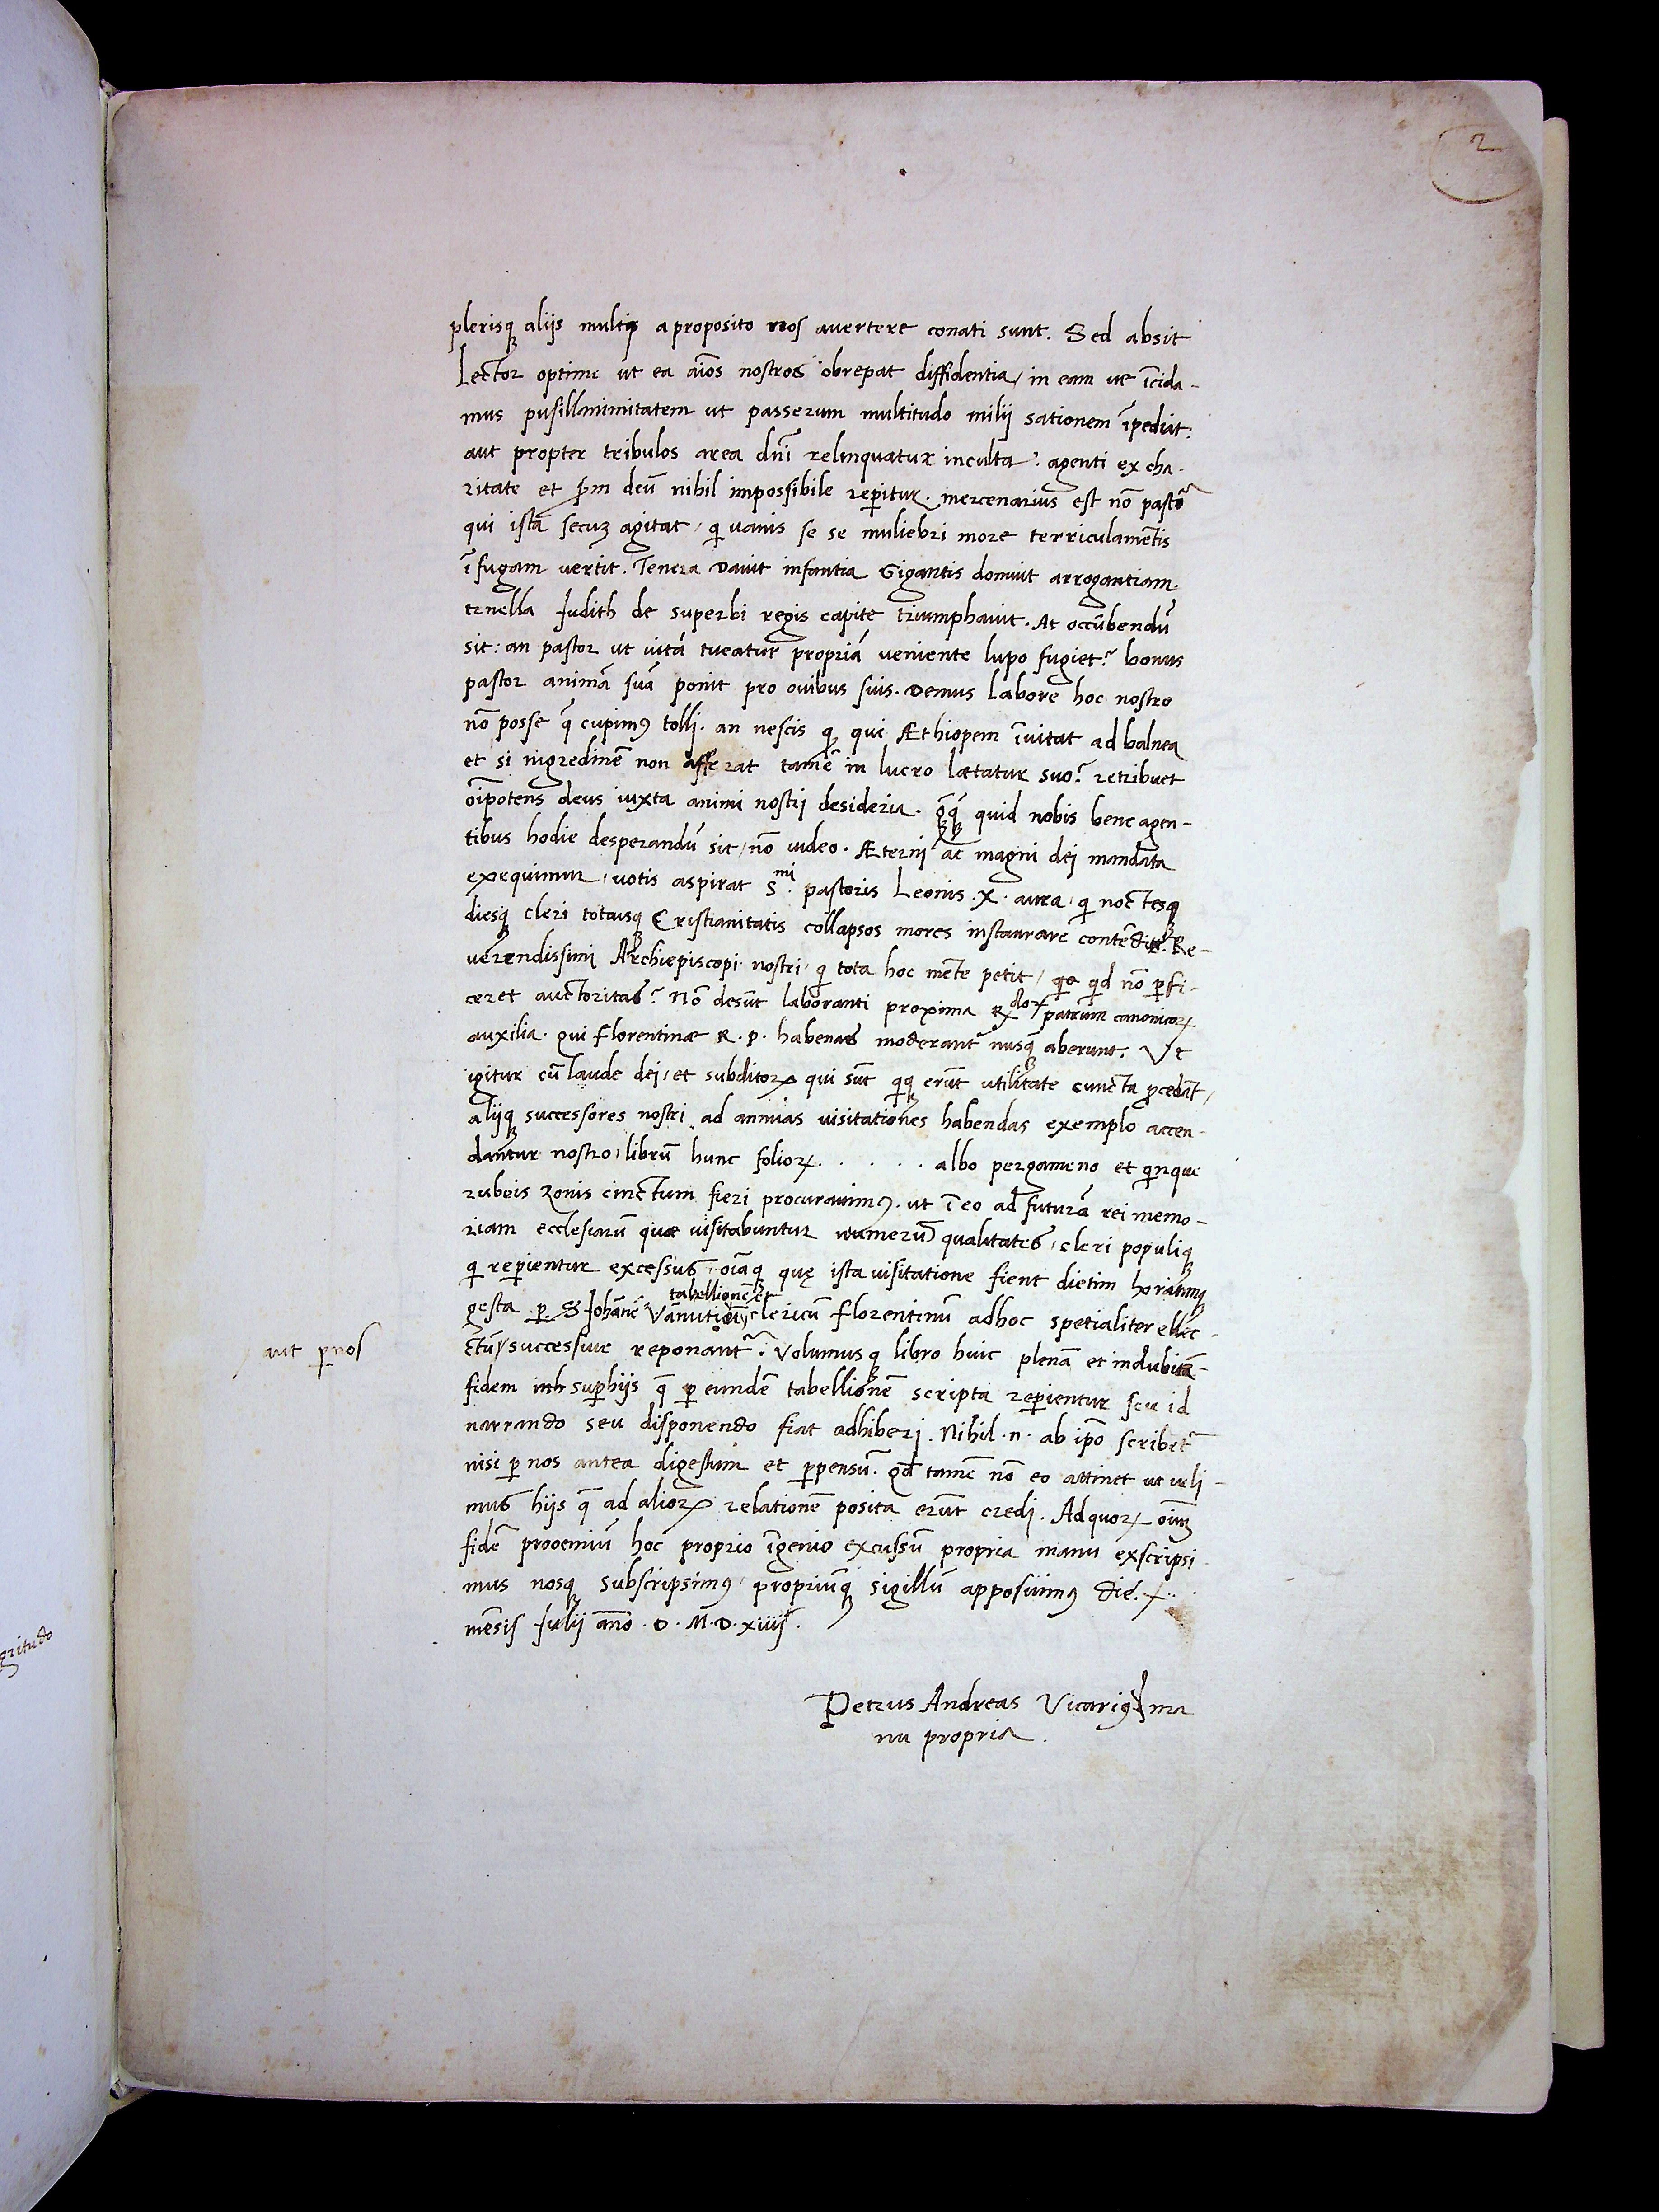 2
plerisqꝫ alijs multis a proposito nos auertere conati sunt. Sed absit
Lector optime ut ea aĩos nostros obrepat diffidentia, in eam ue ĩcida-
mus pusillanimitatem ut passerum multitudo milij sationem ĩpediat:
aut propter tribulos area dñi relinquatur inculta. agenti ex cha-
ritate et ꝓm deũ nihil impossibile reperitur. mercenarius est nõ pastõ
qui ista secuꝫ agitat, qi uanis se se muliebri more terriculamẽtis
ĩ fugam uertit. Tenera Dauit infantia Gigantis domuit arrogantiam.
tenella Iudith de superbi regis capite triumphauit. At occũbendũ
sit: an pastor ut uitã tueatur propriã ueniente lupo fugiet? bonus
pastor animã suã ponit pro ouibus suis. Demus labore hoc nostro
nõ posse q̃ cupimꝰ tolli. an nescis qꝫ qui Æthiopem ĩuitat ad balnea
et si nigredinẽ non afferat tamẽ in lucro lætatur suo? retribuet
oĩpotens deus iuxta animi nostri desideria. q̃qꝫ quid nobis bene agen-
tibus hodie desperandũ sit, nõ uideo. Æterni ac magni dei mandata
exequimur, uotis aspirat S.mi pastoris Leonis .X. aura, qi noctesqꝫ
diesqꝫ cleri totiusqꝫ Cristianitatis collapsos mores instaurare contẽdit. Re-
uerendissimi Archiepiscopi nostri, qi tota hoc mẽte petit, qid nõ ꝑfi-
ceret auctoritas? Nõ desũt laboranti proxima R.doꝝ patrum canonicoꝝ
auxilia. qui florentinæ R. P. habenas moderant̃ nusq̃ aberunt. Vt
igitur cũ laude dei, et subditoꝝ qui sũt qiqꝫ erũt utilitate cuncta ꝓcedãt,
alijqꝫ successores nostri ad annuas uisitationes habendas exemplo accen-
dantur nostro, librũ hunc folioꝝ . . . . . . albo pergameno et qinque
rubeis zonis cinctum fieri procurauimꝰ. ut ĩ eo ad futurã rei memo-
riam ecclesiarũ quæ uisitabuntur numerũ qualitates, cleri populiqꝫ
qi reperientur excessus, oĩaqꝫ quę ista uisitatione fient dietim horatimqꝫ
tabellionẽ et
gesta ꝑ S Iohãnẽ Vãnutium clericũ florentinũ adhoc spetialiter ellec-
aut ꝑ nos
ctũ successiue reponant̃. Volumusqꝫ libro huic plenã et indubitã-
fidem super hijs q̃ ꝑ eundẽ tabellionẽ scripta reperientur seu id
narrando seu disponendo fiat adhiberi. Nihil .n. ab ip̃o scribet̃
nisi ꝑ nos antea digestum et ꝑpensũ. qd̃ tamẽ nõ eo attinet ut ueli-
mus hijs q̃ ad alioꝝ relationẽ posita erũt credi. Ad quoꝝ oĩuꝫ
fidẽ prooemiũ hoc proprio ĩgenio excussũ propria manu exscripsi
mus nosqꝫ subscripsimꝰ, propriũqꝫ sigillũ apposuimꝰ die. X.
mẽsis Iulij añno . D . M . D . xiiij .
Petrus Andreas Vicariꝰ ma
nu propria .
gritudo